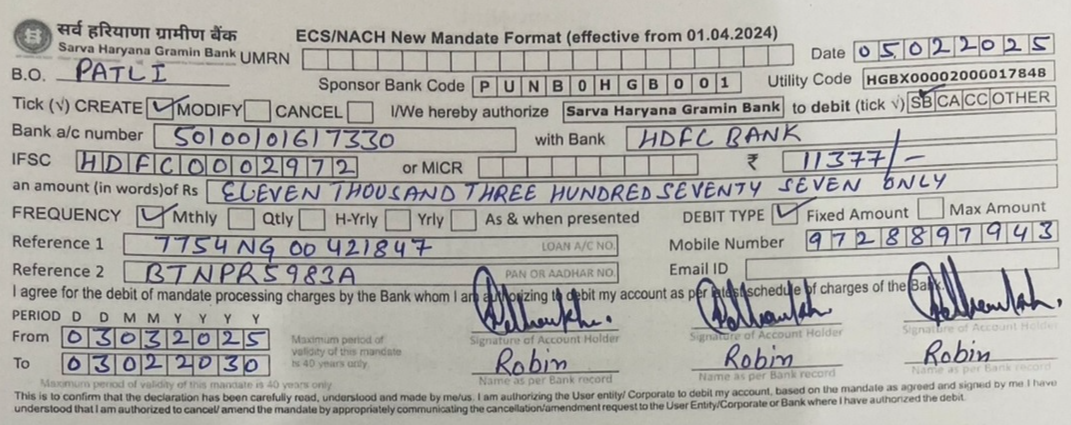 सर्व हरियाणा ग्रामीण बैंक
Sarva Haryana Gramin Bank
ECS/NACH New Mandate Format (effective from 01.04.2024)
UMRN Date 05022025
B.O. PATLI Sponsor Bank Code PUNB0HGB001 Utility Code HGBX00002000017848
Tick (√) CREATE ✓ MODIFY CANCEL I/We hereby authorize Sarva Haryana Gramin Bank to debit (tick √) SB CA CC OTHER
Bank a/c number 50100101617330 with Bank HDFC BANK
IFSC HDFC0002972 or MICR ₹ 11377/-
an amount (in words)of Rs ELEVEN THOUSAND THREE HUNDRED SEVENTY SEVEN ONLY
FREQUENCY ✓ Mthly Qtly H-Yrly Yrly As & when presented DEBIT TYPE ✓ Fixed Amount Max Amount
Reference 1 7754NG 00 421847 LOAN A/C NO. Mobile Number 9728897943
Reference 2 BTNPR5983A PAN OR AADHAR NO. Email ID
I agree for the debit of mandate processing charges by the Bank whom I am authorizing to debit my account as per latest schedule of charges of the Bank.
PERIOD D D M M Y Y Y Y
From 03032025 Maximum period of validity of this mandate is 40 years only Signature of Account Holder Signature of Account Holder Signature of Account Holder
To 03022030 Robin Robin Robin
Maximum period of validity of this mandate is 40 years only Name as per Bank record Name as per Bank record Name as per Bank record
This is to confirm that the declaration has been carefully read, understood and made by me/us. I am authorizing the User entity/ Corporate to debit my account, based on the mandate as agreed and signed by me I have
understood that I am authorized to cancel/ amend the mandate by appropriately communicating the cancellation/amendment request to the User Entity/Corporate or Bank where I have authorized the debit.